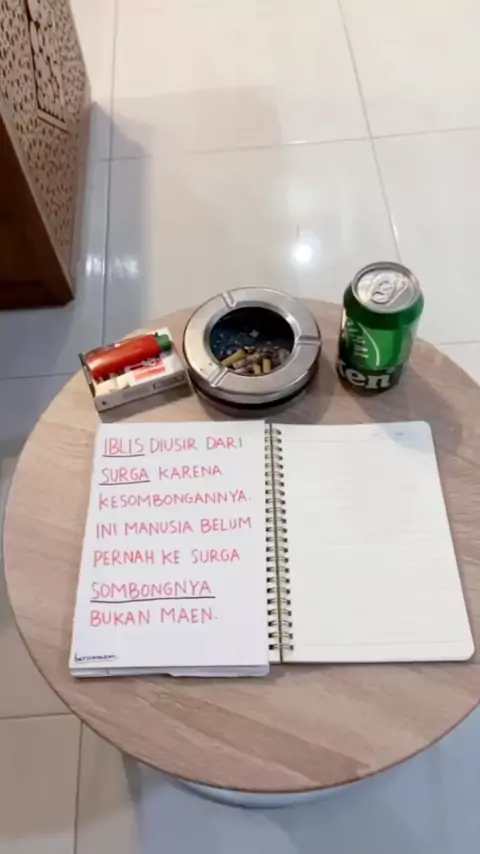 IBLIS DIUSIR DARI
SURGA KARENA
KESOMBONGANNYA.
INI MANUSIA BELUM
PERNAH KE SURGA
SOMBONGNYA
BUKAN MAEN.
ken